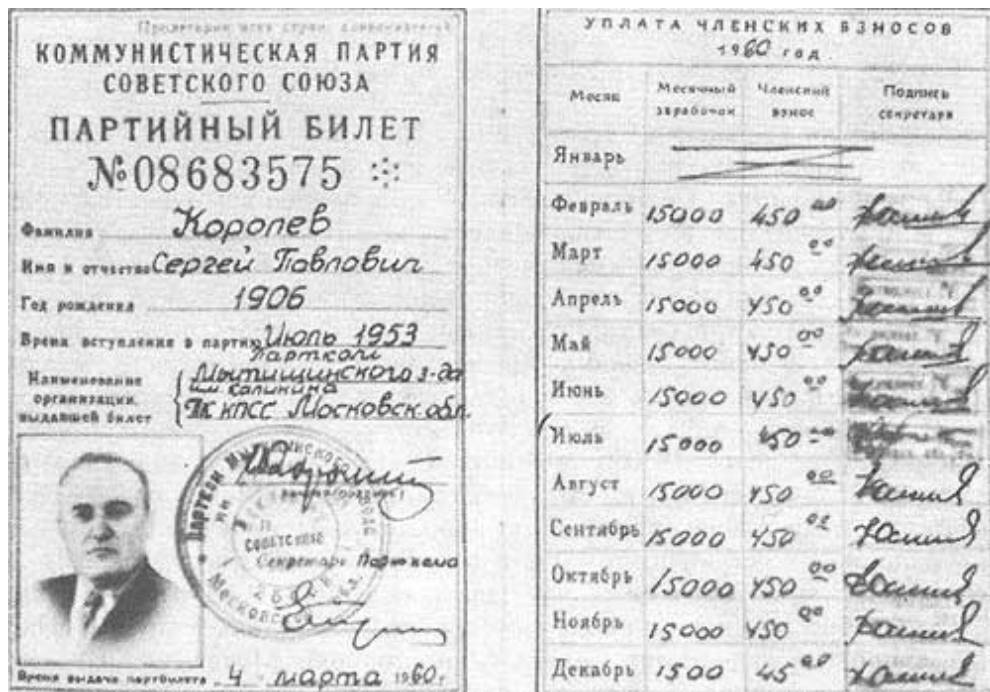 Пролетарии всех стран, соединяйтесь!
КОММУНИСТИЧЕСКАЯ ПАРТИЯ
СОВЕТСКОГО СОЮЗА
ПАРТИЙНЫЙ БИЛЕТ
№08683575
Фамилия Королев
Имя и отчество Сергей Павлович
Год рождения 1906
Время вступления в партию Июль 1953
Парткom
Наименование организации, выдавшей билет
Мытищинского з-да
им. Калинина
ГК КПСС Московск. обл.
Секретарь Парткома
Время выдачи партбилета 4 марта 1960г.
УПЛАТА ЧЛЕНСКИХ ВЗНОСОВ
1960 год
Месяц Месячный заработок Членский взнос Подпись секретаря
Январь
Февраль 15000 450 00
Март 15000 450 00
Апрель 15000 450 00
Май 15000 450 00
Июнь 15000 450 00
Июль 15000 450 00
Август 15000 450 00
Сентябрь 15000 450 00
Октябрь 15000 450 00
Ноябрь 15000 450 00
Декабрь 1500 45 00